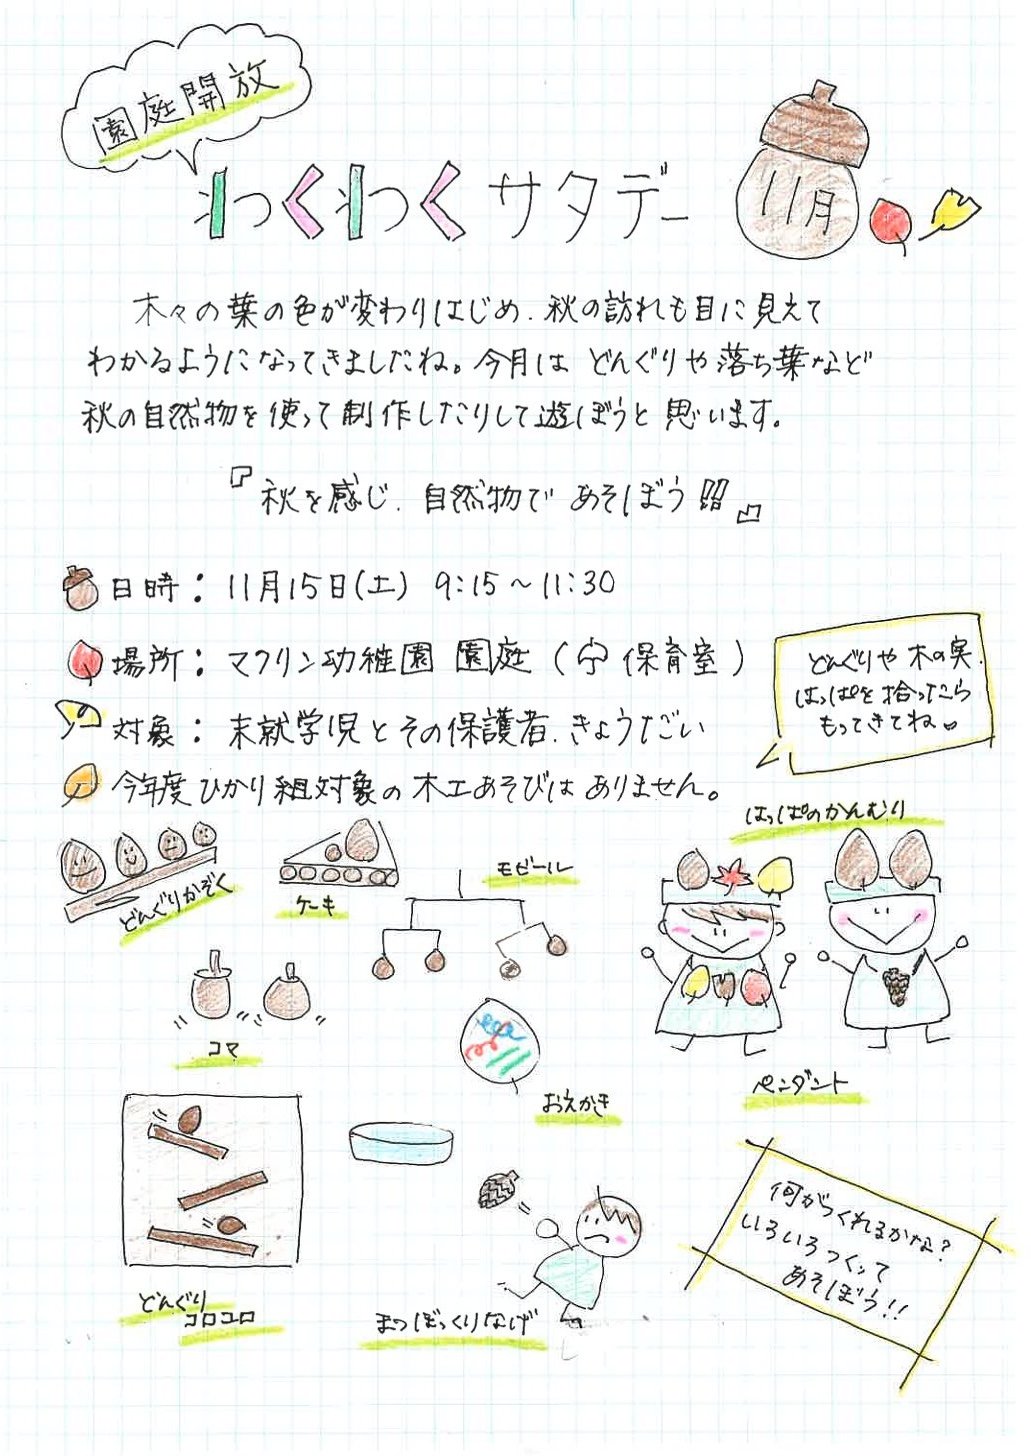 園庭開放
わくわくサタデー
11月
木々の葉の色が変わりはじめ、秋の訪れも目に見えて
わかるようになってきましたね。今月は どんぐりや落ち葉など
秋の自然物を使って制作したりして遊ぼうと思います。
『秋を感じ、自然物で あそぼう!!!』
日時：11月15日(土) 9:15～11:30
場所：マクリン幼稚園 園庭（ 保育室）
対象：未就学児とその保護者、きょうだい
今年度ひかり組対象の木工あそびはありません。
どんぐりや木の実、
はっぱを拾ったら
もってきてね。
はっぱのかんむり
どんぐりかぞく
ケーキ
モビール
コマ
おえかき
ペンダント
どんぐり
コロコロ
まつぼっくりなげ
何がつくれるかな?
いろいろつくって
あそぼう!!